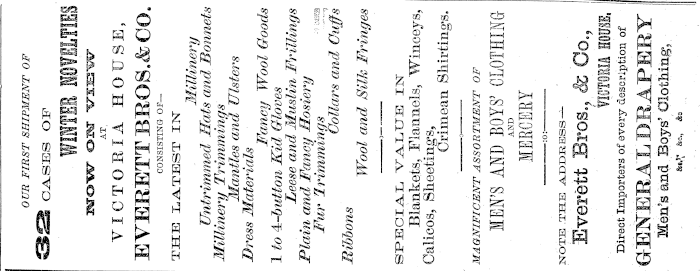 OUR FIRST SHIPMENT OF
32 CASES OF
WINTER NOVELTIES
NOW ON VIEW
AT
VICTORIA HOUSE,
EVERETT BROS. & CO.
CONSISTING OF—
THE LATEST IN
Millinery
Untrimmed Hats and Bonnets
Millinery Trimmings
Mantles and Ulsters
Dress Materials
Fancy Wool Goods
1 to 4-button Kid Gloves
Lese and Muslin Frillings
Plain and Fancy Hosiery
Fur Trimmings
Collars and Cuffs
Ribbons
Wool and Silk Fringes
SPECIAL VALUE IN
Blankets, Flannels, Winceys,
Calicos, Sheetings,
Crimean Shirtings.
MAGNIFICENT ASSORTMENT OF
MEN'S AND BOYS' CLOTHING
AND
MERCERY
NOTE THE ADDRESS—
Everett Bros., & Co.,
VICTORIA HOUSE,
Direct Importers of every description of
GENERAL DRAPERY
Men's and Boys' Clothing,
&c., &c., &c